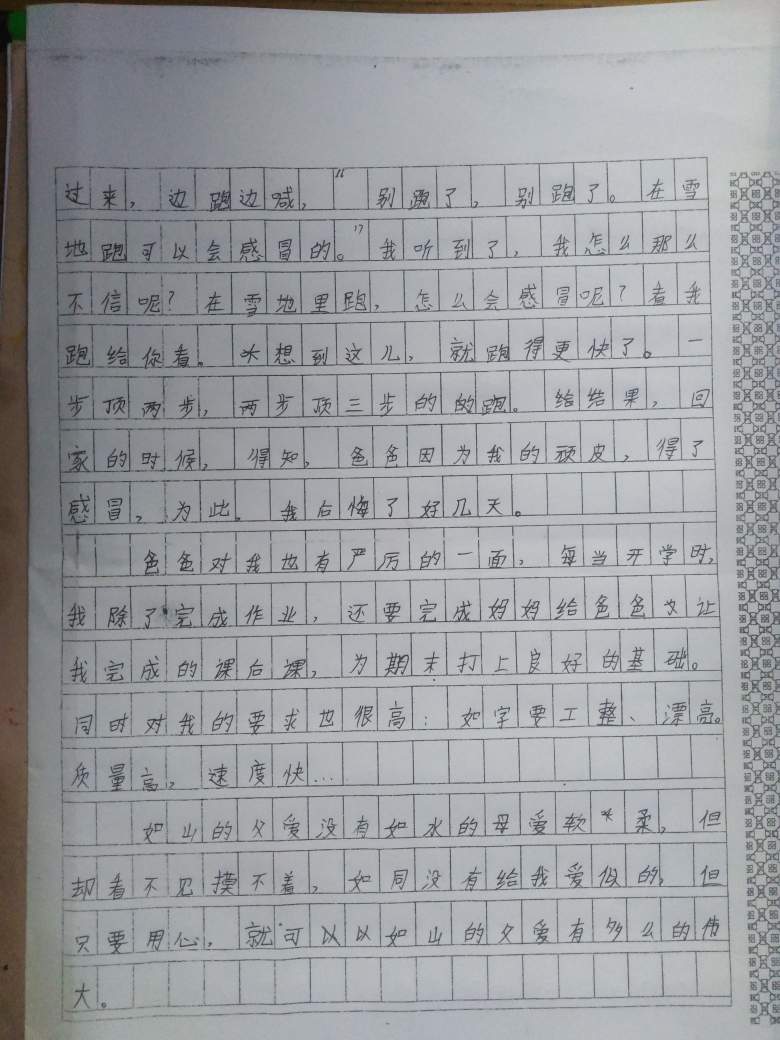 过来，边跑边喊，“别跑了，别跑了。在雪
地跑可以会感冒的。”我听到了，我怎么那么
不信呢？在雪地里跑，怎么会感冒呢？看我
跑给你看。想到这儿，就跑得更快了。一
步顶两步，两步顶三步的的跑。给结果，回
家的时候，得知，爸爸因为我的顽皮，得了
感冒，为此。我后悔了好几天。
爸爸对我也有严厉的一面，每当开学时，
我除了完成作业，还要完成妈妈给爸爸让
我完成的课后课，为期末打上良好的基础。
同时对我的要求也很高：如字要工整、漂亮。
质量高，速度快…
如山的父爱没有如水的母爱软柔，但
却看不见摸不着，如同没有给我爱似的，但
只要用心，就可以以如山的父爱有多么的伟
大。